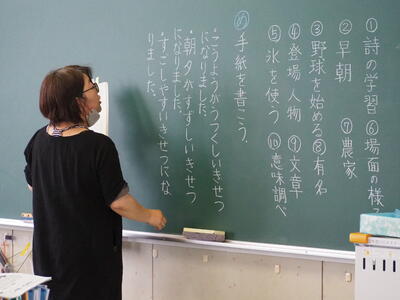 ①詩の学習 ⑥場面の様
②早朝 ⑦農家
③野球を始める ⑧有名
④登場人物 ⑨文章
⑤氷を使う ⑩意味調べ
め 手紙を書こう。
・こうようがうつくしいきせつ
になりました。
・朝夕がすずしいきせつ
になりました。
・すごしやすいきせつにな
りました。